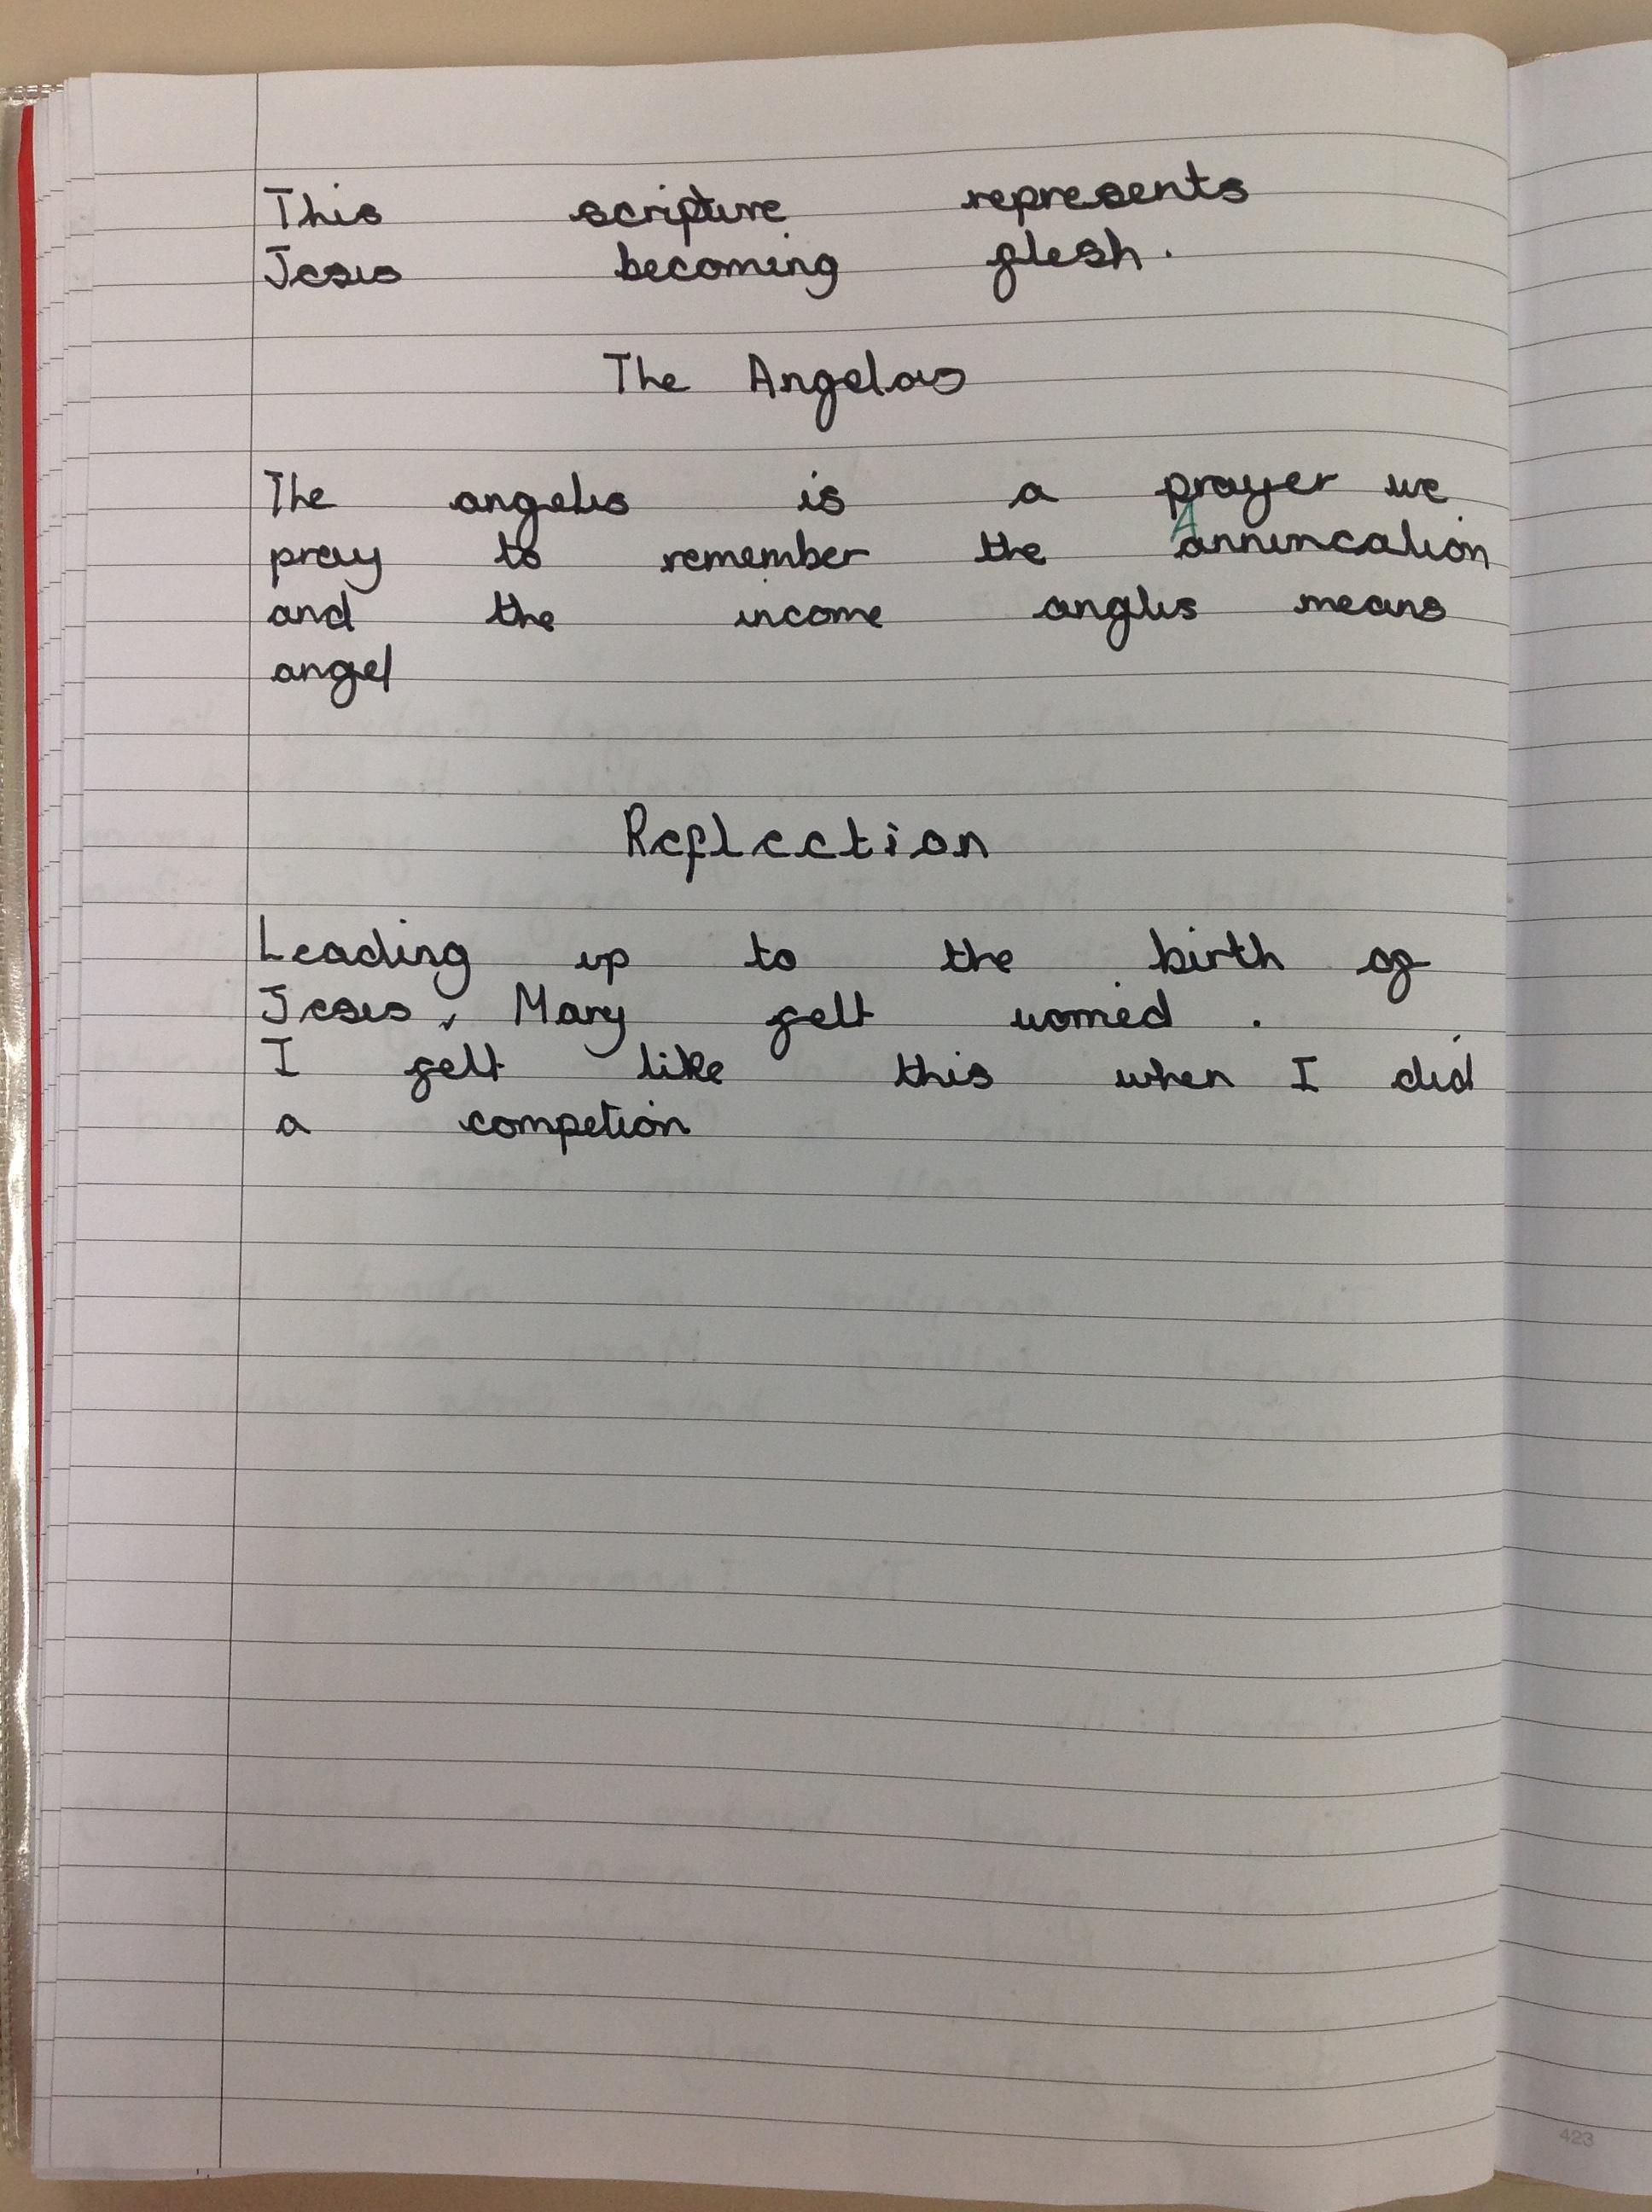 This scripture represents
Jesus becoming flesh.
The Angelous
The angelus is a prayer we
pray to remember the Annuncation
and the income anglus means
angel
Reflection
Leading up to the birth of
Jesus, Mary felt worried.
I felt like this when I did
a competion
423